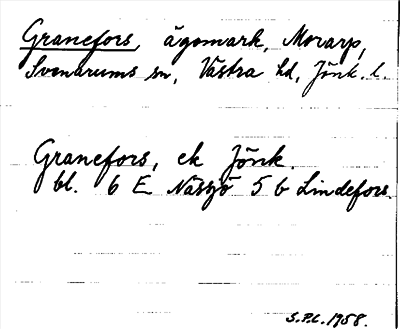 Granefors, ägomark, Morarp,
Svenarums sn, Västra hd, Jönk. l.
Granefors, ek Jönk.
bl. 6 E Nässjö 5 b Lindefors.
S.P.C. 1958.